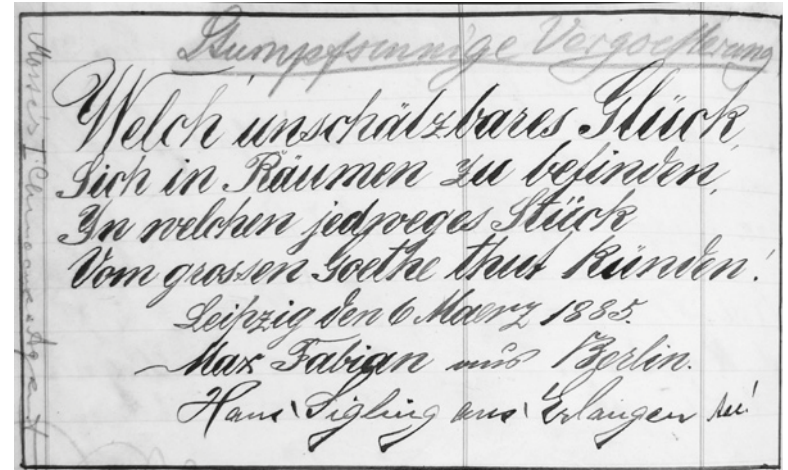 Stumpfsinnige Vergoetterung
Welch' unschätzbares Glück,
Sich in Räumen zu befinden,
In welchen jedweges Stück
Vom grossen Goethe thut künden!
Leipzig den 6 Maerz 1885.
Max Fabian aus Berlin.
Hans Sigling aus Erlangen